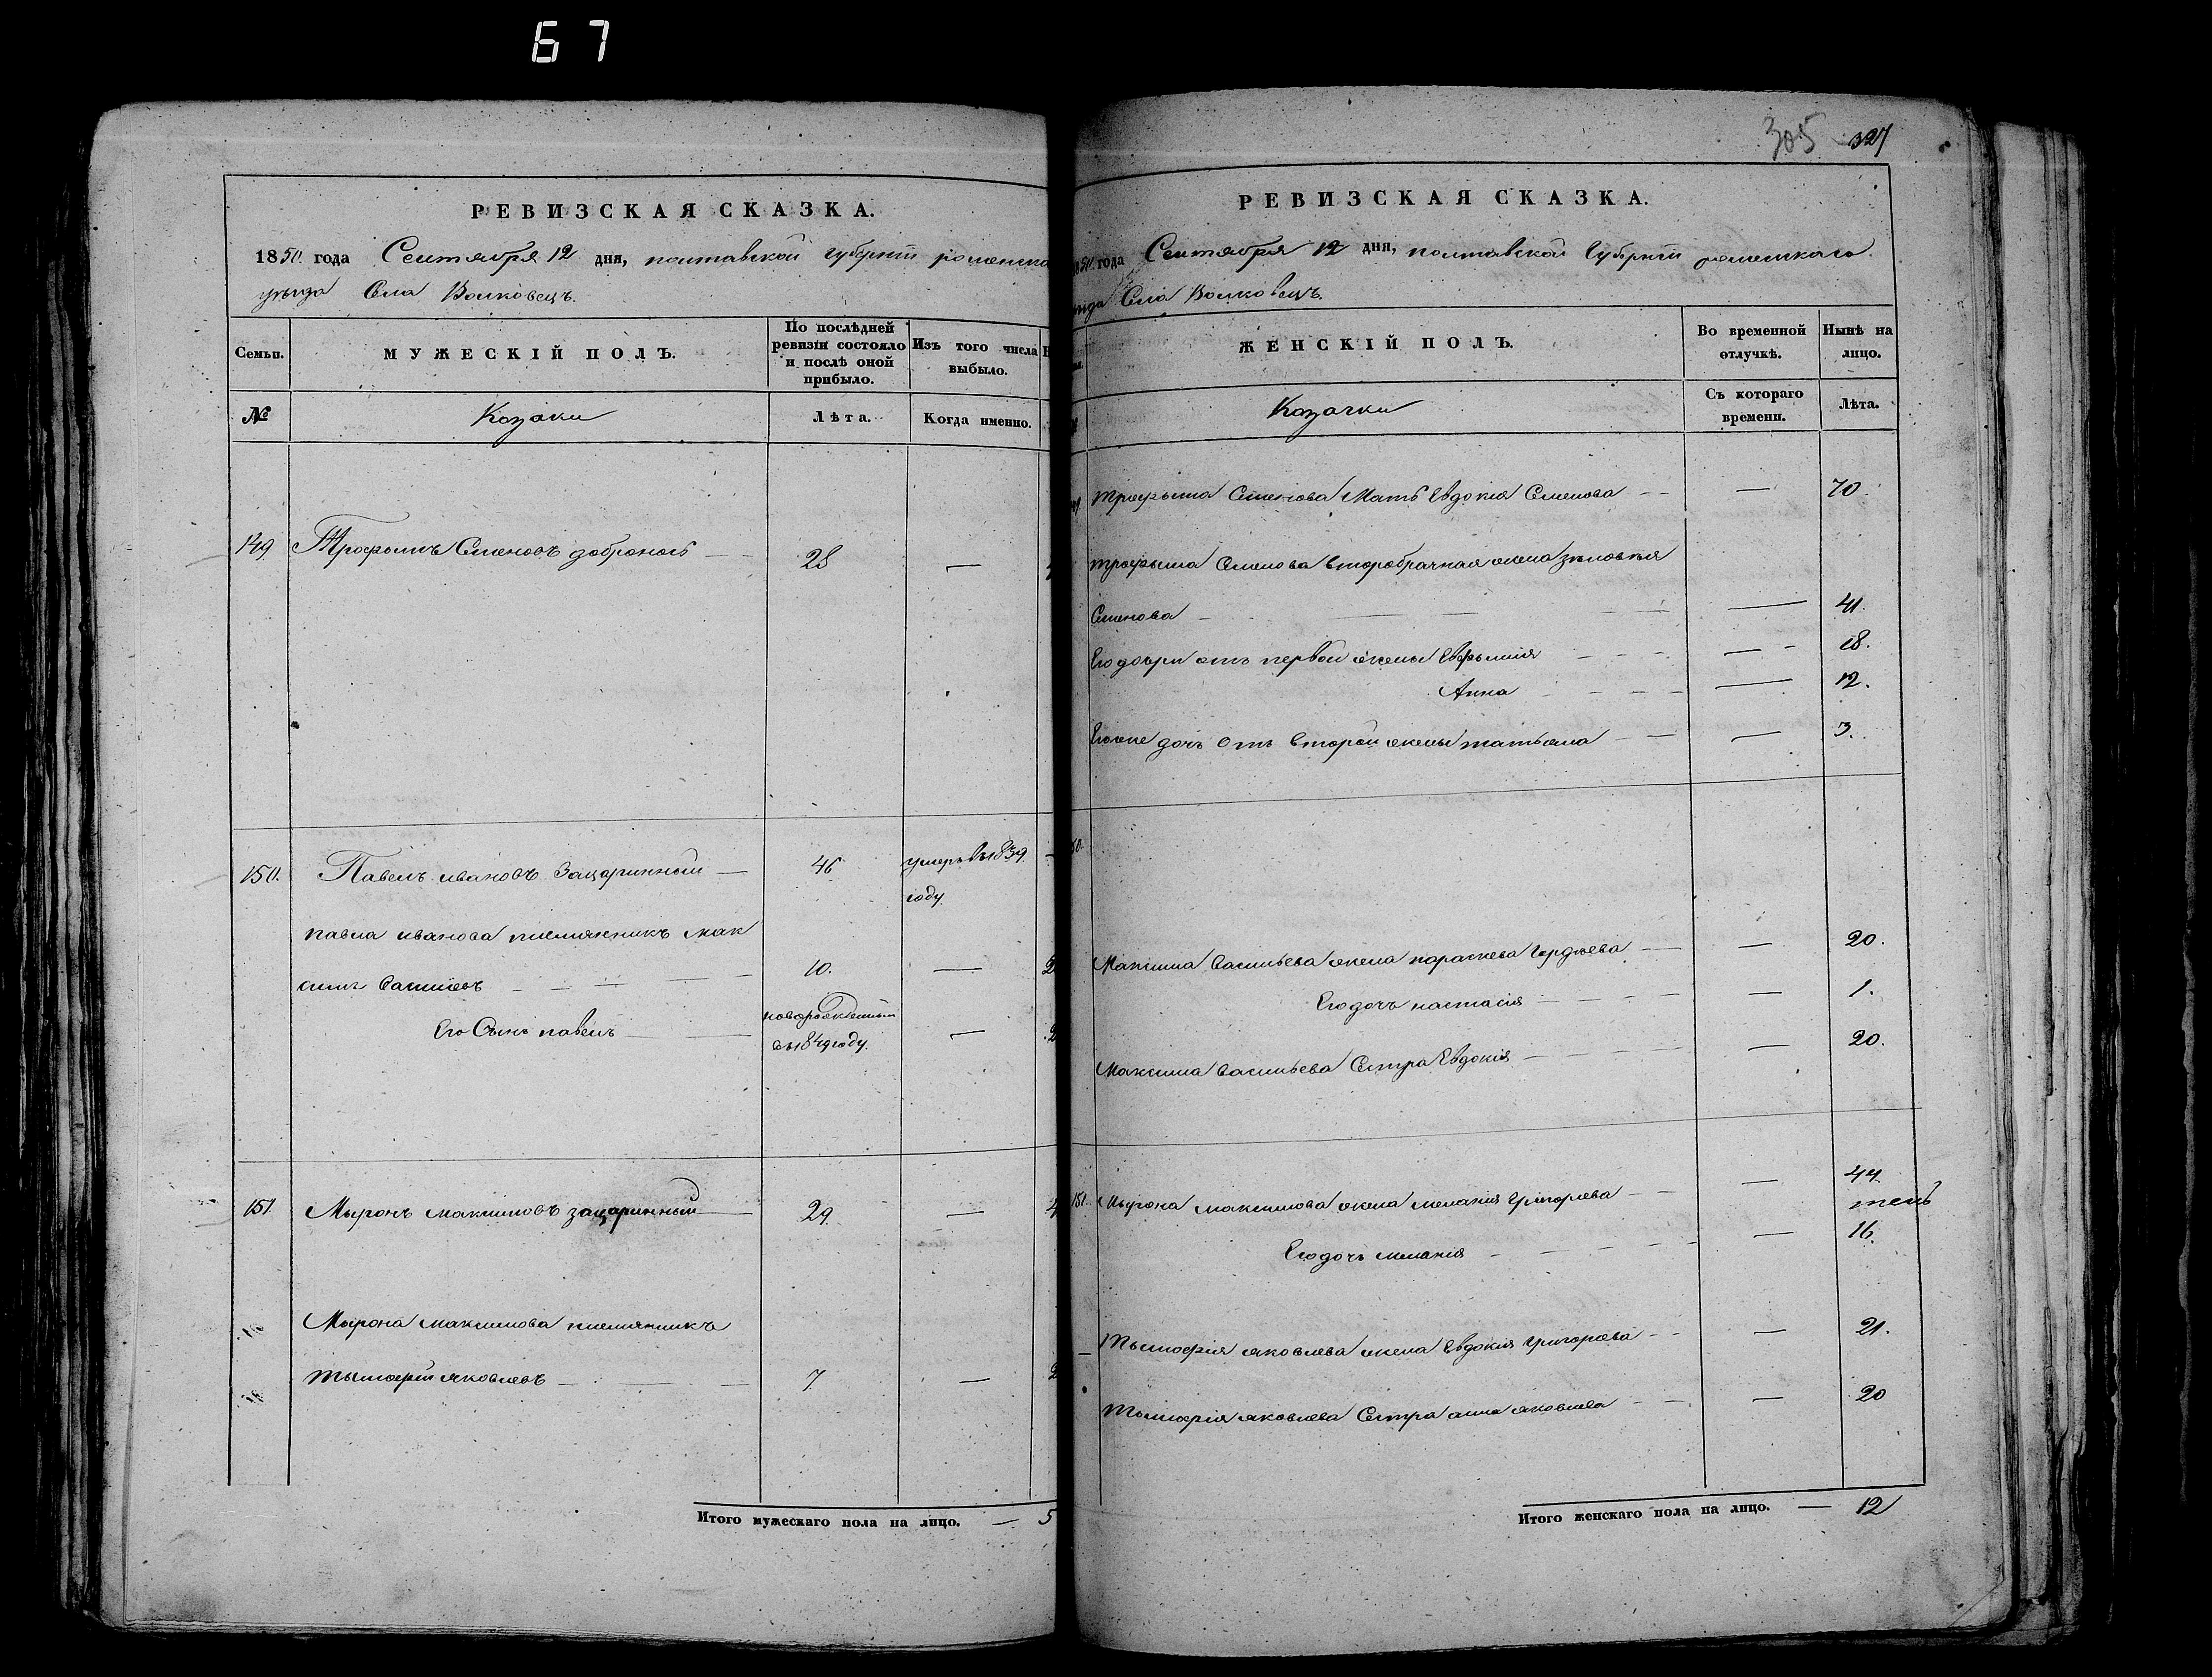 67
РЕВИЗСКАЯ СКАЗКА.
1850 года Сентября 12 дня, полтавской губерніи роменска
уѣзда Села Волковецъ.
Семьи.
МУЖЕСКІЙ ПОЛЪ.
По послѣдней ревизіи состояло и послѣ оной прибыло.
Изъ того числа выбыло.
№
Козаки
Лѣта.
Когда именно.
149. Трофымъ Семеновъ добронось — 28 —
150. Павелъ ивановъ Зацаринный — 46 умеръ въ 1839.
году.
павла иванова племянникъ мак
симъ Василіевъ — 10. —
Его Сынъ павелъ — новорожденный —
въ 1849 году.
151. Мыронъ максимовъ зацаринный — 29. —
Мырона максимова племянникъ
тымофій яковлевъ — 7. —
Итого мужескаго пола на лицо. — 5
305 327
РЕВИЗСКАЯ СКАЗКА.
1850 года Сентября 12 дня, полтавской Губерніи роменскаго
Села Волковецъ.
ЖЕНСКІЙ ПОЛЪ.
Во временной отлучкѣ.
Нынѣ на лицо.
Козачки
Съ котораго времени.
Лѣта.
трофыма Семенова Мать Евдокія Семенова — 70.
трофыма Семенова второбрачная жена зѣновія
Семенова — 41.
Его дочри отъ первой жены Евфымія — 18.
Анна — 12.
Егоже дочь отъ второй жены татьяна — 3.
Максима Васильева жена параскева Гордѣева — 20.
Его дочь настасія — 1.
Максима Васильева Сестра Евдокія — 20.
151. Мырона максимова жена меланія Григорьева — 44.
Его дочь меланія — 16.
Тымофія яковлева жена Евдокія Григорьева — 21.
Тымофія яковлева Сестра анна яковлева — 20
Итого женскаго пола на лицо. — 12